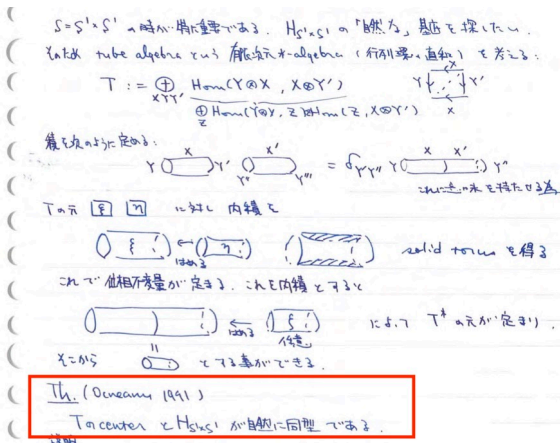 S=S¹×S¹ の時が特に重要である. H_{S¹×S¹} の「自然な」基底を探したい.
そのため tube algebra という有限次元 *-algebra (行列環の直和) を考える:
T := ⊕_{XYY'} Hom(Y⊗X, X⊗Y')
X
Y Y'
X
⊕_Z Hom(Y⊗X, Z)⊗Hom(Z, X⊗Y')
積を次のように定める:
X X' X X'
Y Y' Y'' Y''' = δ_{Y'Y''} Y Y'''
これに意味を持たせる
Tの元 ξ η に対し 内積を
ξ η solid torus を得る
はめる
これで位相不変量が定まる. これを内積とすると
ξ によって T* の元が定まり.
はめる
任意
そこから とする事ができる.
Th. (Ocneanu 1991)
Tのcenter と H_{S¹×S¹} が自然に同型である.